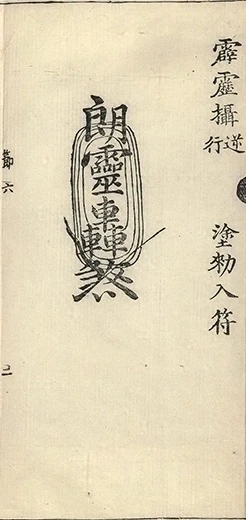 霹靂攝逆行 塗勅入符
朗靈轟煞
節六 二